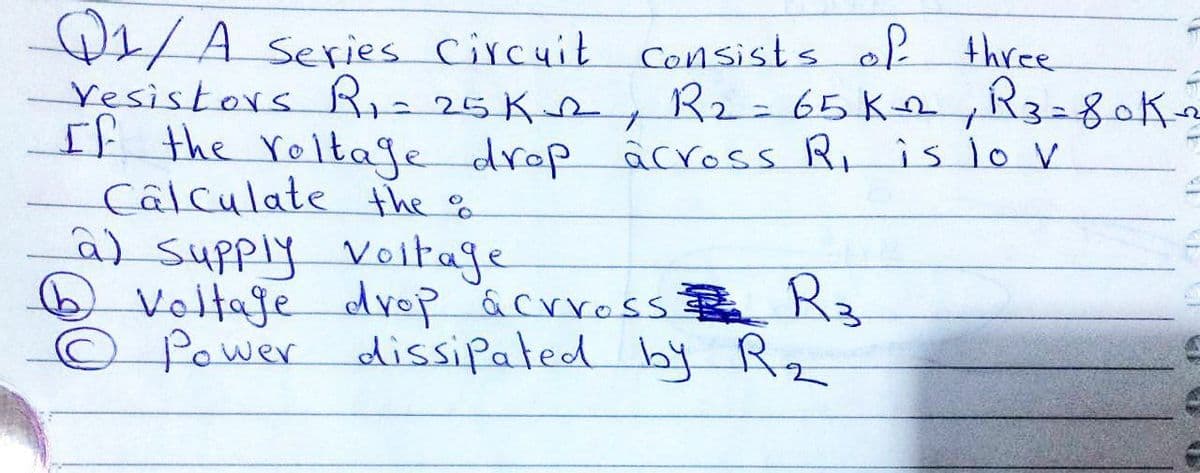 Q1/ A series circuit consists of three
resistors R₁ = 25 KΩ, R₂ = 65 KΩ, R₃ = 80KΩ
If the voltage drop across R₁ is 10 V
Calculate the :
a) supply voltage
(b) Voltage drop acrross R₃
(c) Power dissipated by R₂